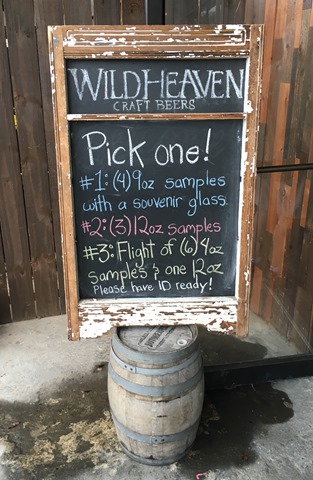 WILD HEAVEN
CRAFT BEERS
Pick one!
#1: (4) 9oz samples
with a souvenir glass.
#2: (3) 12oz samples
#3: Flight of (6) 4oz
samples & one 12oz
Please have ID ready!